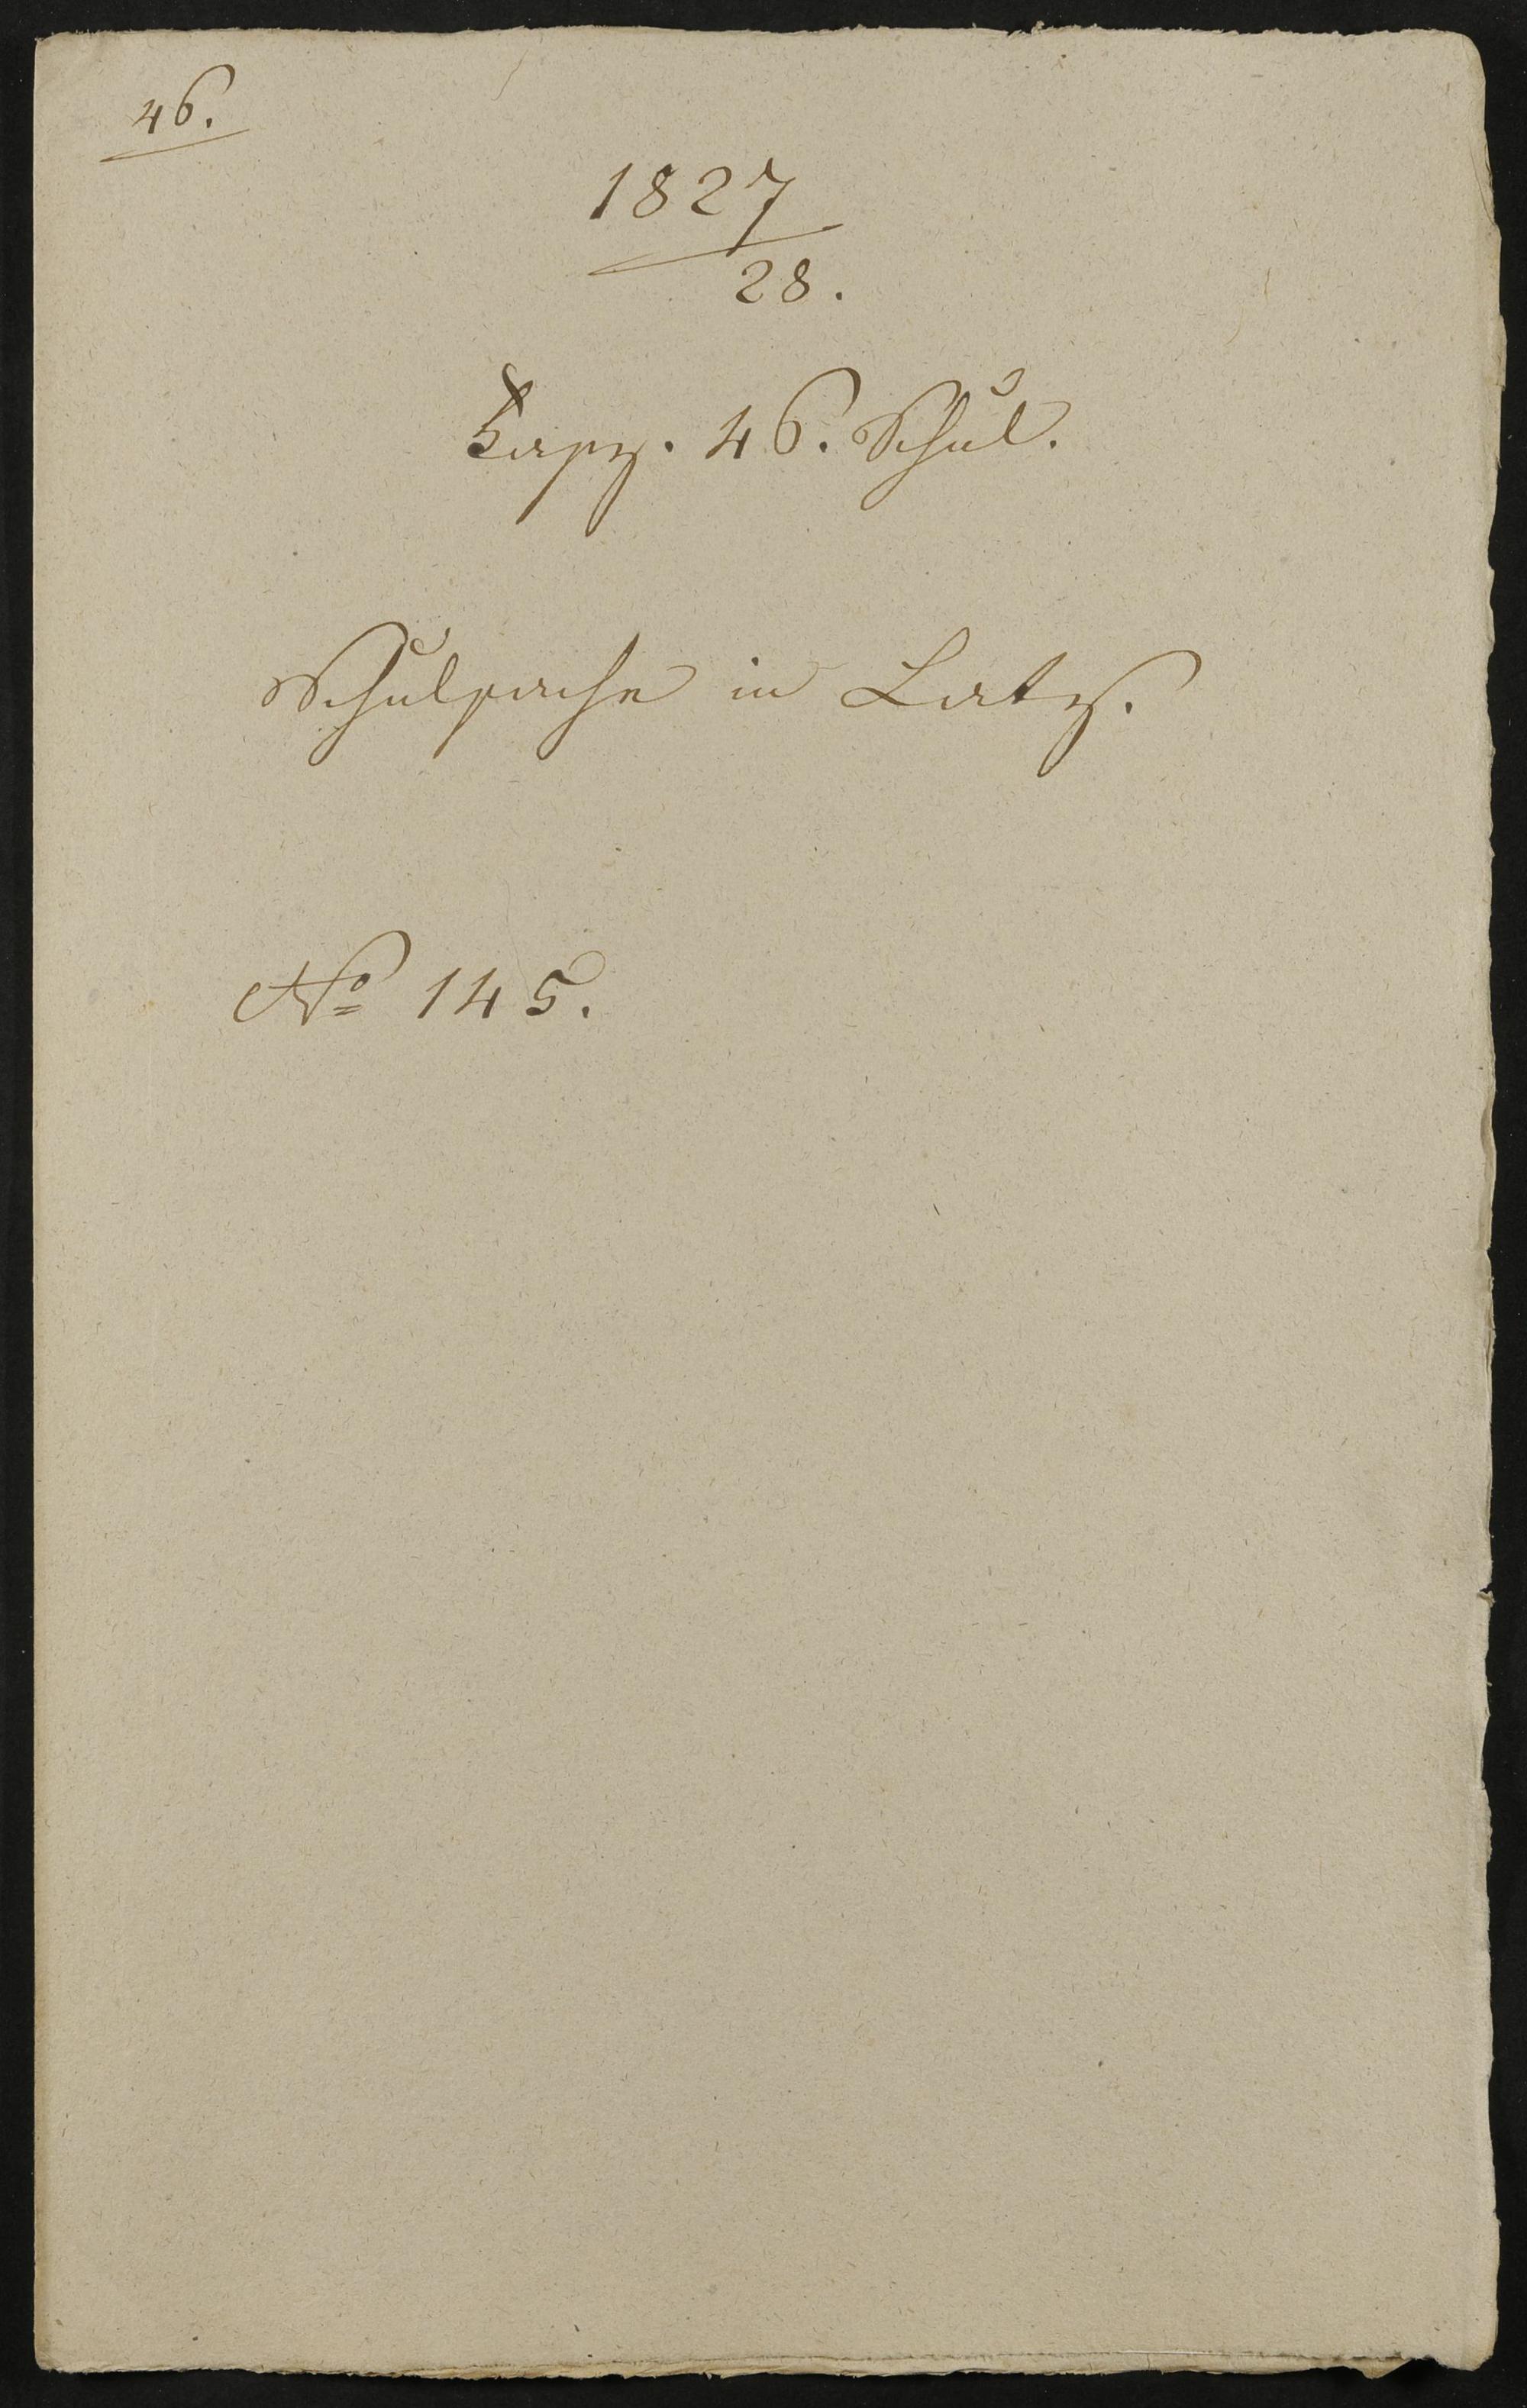 46.
1827
28.
Fasz. 46. Schul.
Schulsache in Latz.
No 145.